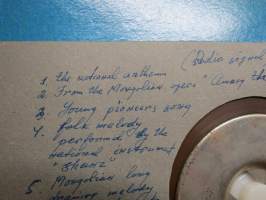 (Radio signal
1. The national anthem
2. From the Mongolian opera "Among the
3. Young pioneers song
4. folk melody
performed by the
national instrument
"Shanz"
5. Mongolian long
melody